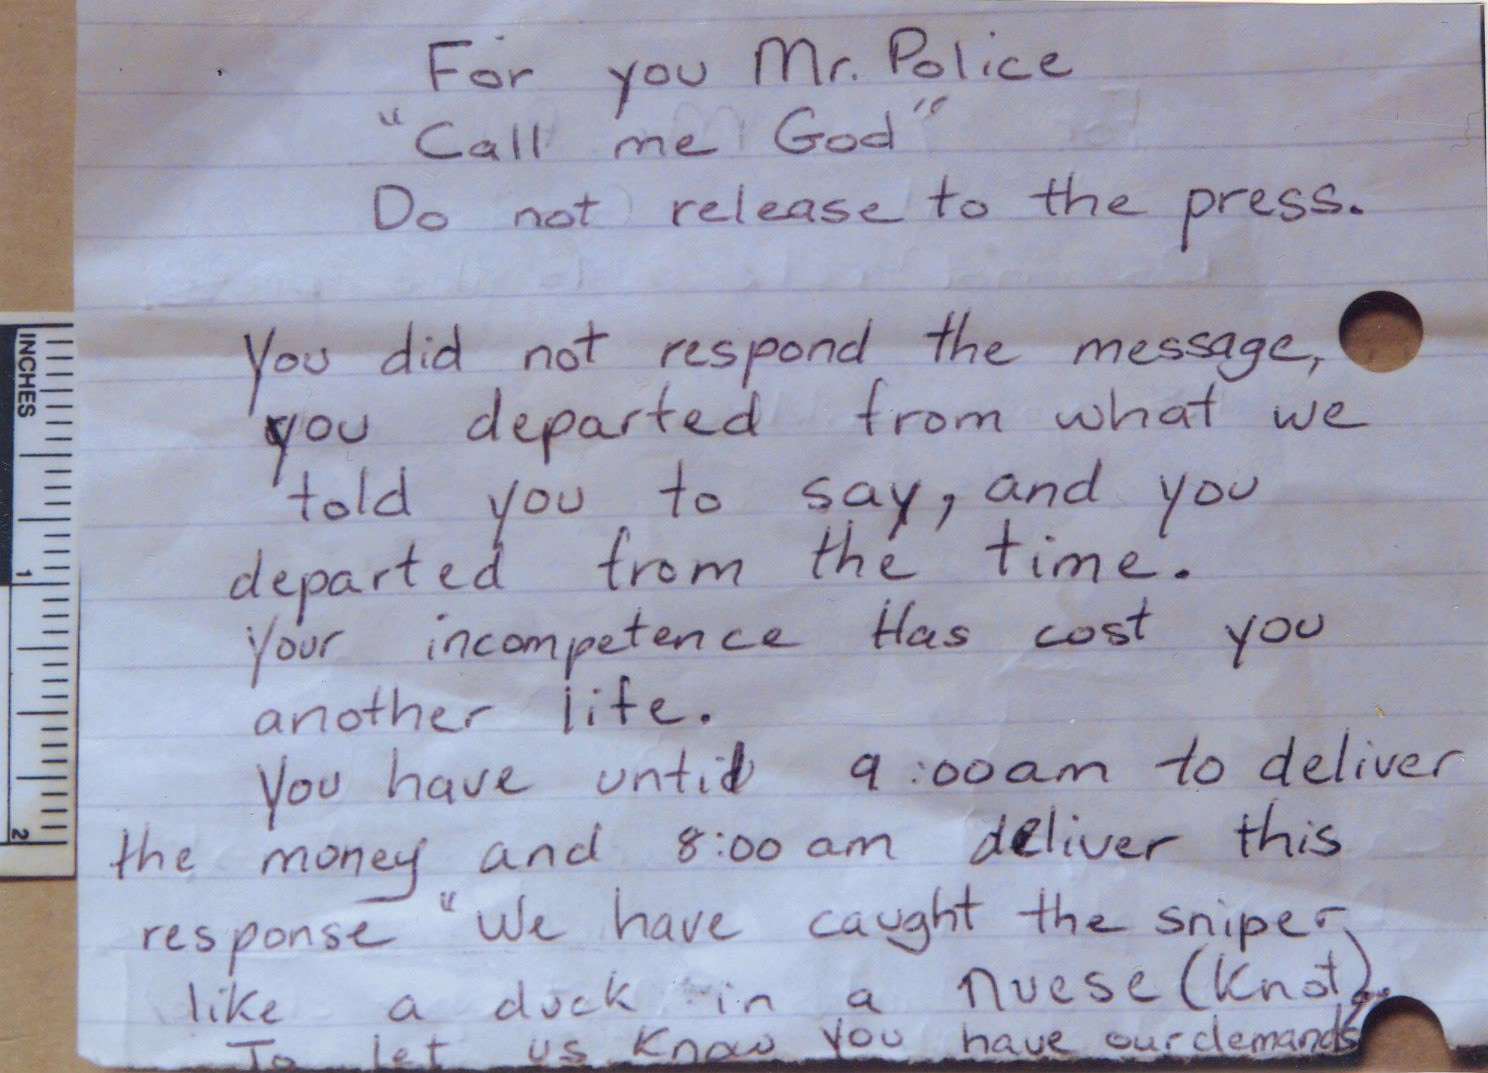 For you Mr. Police
"Call me God"
Do not release to the press.
You did not respond the message,
you departed from what we
told you to say, and you
departed from the time.
Your incompetence Has cost you
another life.
You have until 9:00am to deliver
the money and 8:00 am deliver this
response "We have caught the sniper
like a duck in a nuese (Knot)
To let us know you have our demands
INCHES
1
2